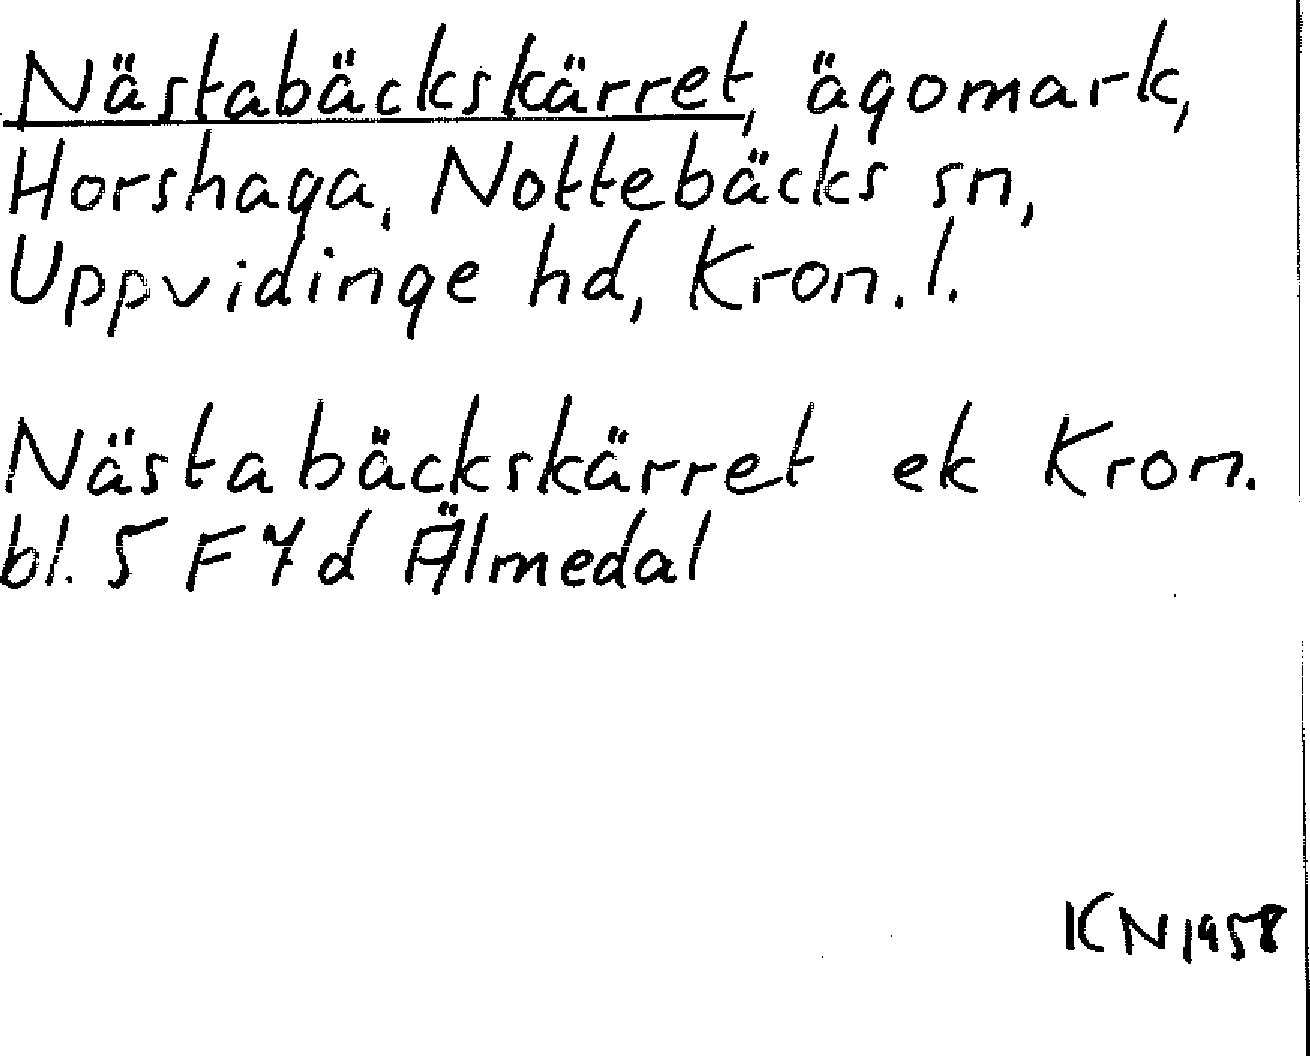 Nästabäckskärret, ägomark,
Horshaga, Nottebäcks sn,
Uppvidinge hd, Kron. l.
Nästabäckskärret ek Kron.
bl. 5 F 7 d Älmedal
KN 1958